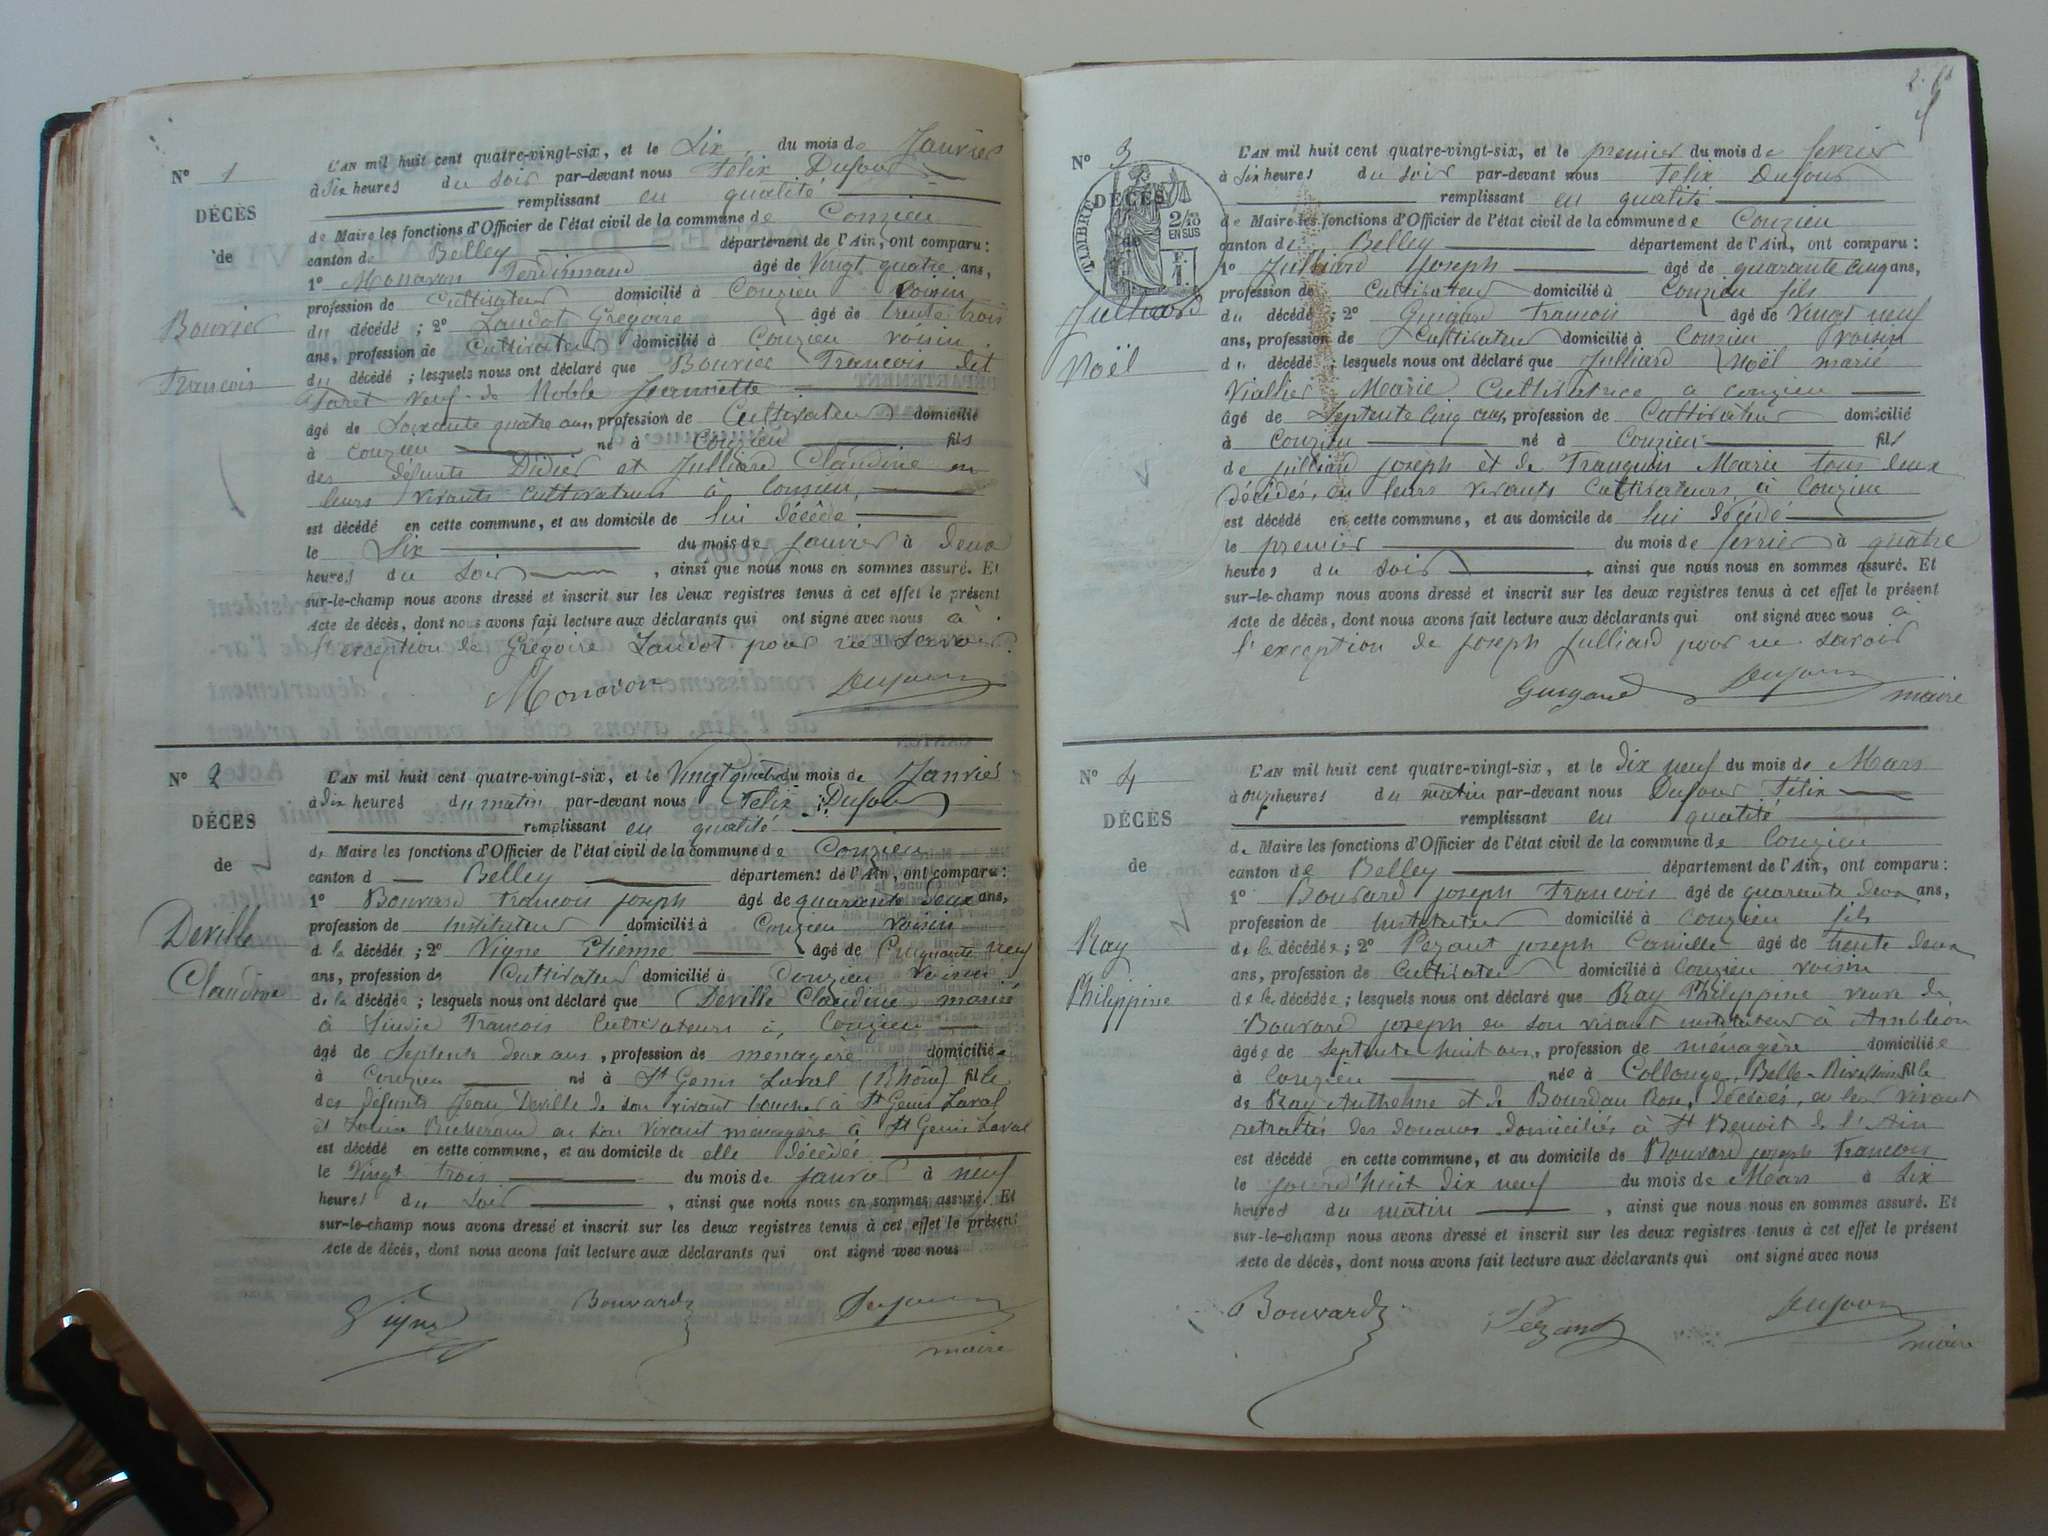 N° 1
DÉCÈS
de
Bouvier
François
L'AN mil huit cent quatre-vingt-six, et le Six du mois de Janvier
à Six heures du soir par-devant nous Felix Dufour
remplissant en qualité
de Maire les fonctions d'Officier de l'état civil de la commune de Conzieu
canton de Belley département de l'Ain, ont comparu :
1° Monavon Ferdinnand âgé de Vingt quatre ans,
profession de Cultivateur domicilié à Conzieu voisin
du décédé ; 2° Landot Gregoire âgé de trente trois
ans, profession de Cultivateur domicilié à Conzieu voisin
du décédé ; lesquels nous ont déclaré que Bouvier François dit
veuf de Noble Jeannette
âgé de Soixante quatre ans, profession de Cultivateur domicilié
à Conzieu né à Conzieu fils
des défunts Didier et Julliard Claudine en
leurs vivants cultivateurs à Conzieu
est décédé en cette commune, et au domicile de lui décédé
le Six du mois de Janvier à deux
heures du soir , ainsi que nous nous en sommes assuré. Et
sur-le-champ nous avons dressé et inscrit sur les deux registres tenus à cet effet le présent
Acte de décès, dont nous avons fait lecture aux déclarants qui ont signé avec nous à
l'exception de Grégoire Landot pour ne savoir.
Monavon Dufour
N° 2
DÉCÈS
de
Deville
Claudine
L'AN mil huit cent quatre-vingt-six, et le Vingt quatre du mois de Janvier
à Dix heures du matin par-devant nous Felix Dufour
remplissant en qualité
de Maire les fonctions d'Officier de l'état civil de la commune de Conzieu
canton d Belley département de l'Ain, ont comparu :
1° Bouvard François Joseph âgé de quarante deux ans,
profession de Instituteur domicilié à Conzieu voisin
d la décédée ; 2° Vigne Etienne âgé de Cinquante neuf
ans, profession de Cultivateur domicilié à Conzieu voisin
de la décédée ; lesquels nous ont déclaré que Deville Claudine marié
à François Cultivateurs à Conzieu
âgé de Septente deux ans, profession de ménagère domiciliée
à Conzieu né à St Genis Laval (Rhône) fille
des défunts Jean Deville de son vivant boucher à St Genis Laval
et en son vivant ménagère à St Genis Laval
est décédé en cette commune, et au domicile de elle décédée
le Vingt trois du mois de Janvier à neuf
heures du soir , ainsi que nous nous en sommes assuré. Et
sur-le-champ nous avons dressé et inscrit sur les deux registres tenus à cet effet le présent
Acte de décès, dont nous avons fait lecture aux déclarants qui ont signé avec nous
Vigne Bouvard Dufour
maire
N° 3
TIMBRE
2/10 EN SUS
F. 1.
DÉCÈS
de
Julliard
Noël
L'AN mil huit cent quatre-vingt-six, et le premier du mois de fevrier
à Six heures du soir par-devant nous Felix Dufour
remplissant en qualité
de Maire les fonctions d'Officier de l'état civil de la commune de Conzieu
canton de Belley département de l'Ain, ont comparu :
1° Julliard Joseph âgé de quarante cinq ans,
profession de Cultivateur domicilié à Conzieu fils
du décédé ; 2° Guigard Francois âgé de vingt neuf
ans, profession de Cultivateur domicilié à Conzieu voisin
du décédé ; lesquels nous ont déclaré que Julliard Noël marié
Viallier Marie Cultivatrice a conzieu
âgé de Septente cinq ans, profession de Cultivateur domicilié
à Conzieu né à Conzieu fils
de julliard Joseph et de Franquin Marie tous deux
décédés, en leurs vivants Cultivateurs, à Conzieu
est décédé en cette commune, et au domicile de lui décédé
le premier du mois de fevrier à quatre
heures du soir , ainsi que nous nous en sommes assuré. Et
sur-le-champ nous avons dressé et inscrit sur les deux registres tenus à cet effet le présent
Acte de décès, dont nous avons fait lecture aux déclarants qui ont signé avec nous à
l'exception de Joseph Julliard pour ne savoir
Guigard Dufour maire
N° 4
DÉCÈS
de
Ray
Philippine
L'AN mil huit cent quatre-vingt-six, et le Dix neuf du mois de Mars
à onze heures du matin par-devant nous Dufour Félix
remplissant en qualité
de Maire les fonctions d'Officier de l'état civil de la commune de Conzieu
canton de Belley département de l'Ain, ont comparu :
1° Bouvard Joseph Francois âgé de quarente deux ans,
profession de Instituteur domicilié à Conzieu fils
de la décédée ; 2° Pezant joseph Camille âgé de trente deux
ans, profession de Cultivateur domicilié à Conzieu voisin
de la décédée ; lesquels nous ont déclaré que Ray Philippine veuve de
Bouvard joseph en son vivant instituteur à Ambléon
âgée de septente huit ans, profession de ménagère domiciliée
à Conzieu née à Collonge, fille
de Ray Anthelme et de Bourdau Rose, décédés, en leur vivant
retraités des douanes domiciliés à St Benoit de l'Ain
est décédé en cette commune, et au domicile de Bouvard joseph Francois
le jourd'huit dix neuf du mois de Mars à six
heures du matin , ainsi que nous nous en sommes assuré. Et
sur-le-champ nous avons dressé et inscrit sur les deux registres tenus à cet effet le présent
Acte de décès, dont nous avons fait lecture aux déclarants qui ont signé avec nous
Bouvard Pezant Dufour
maire